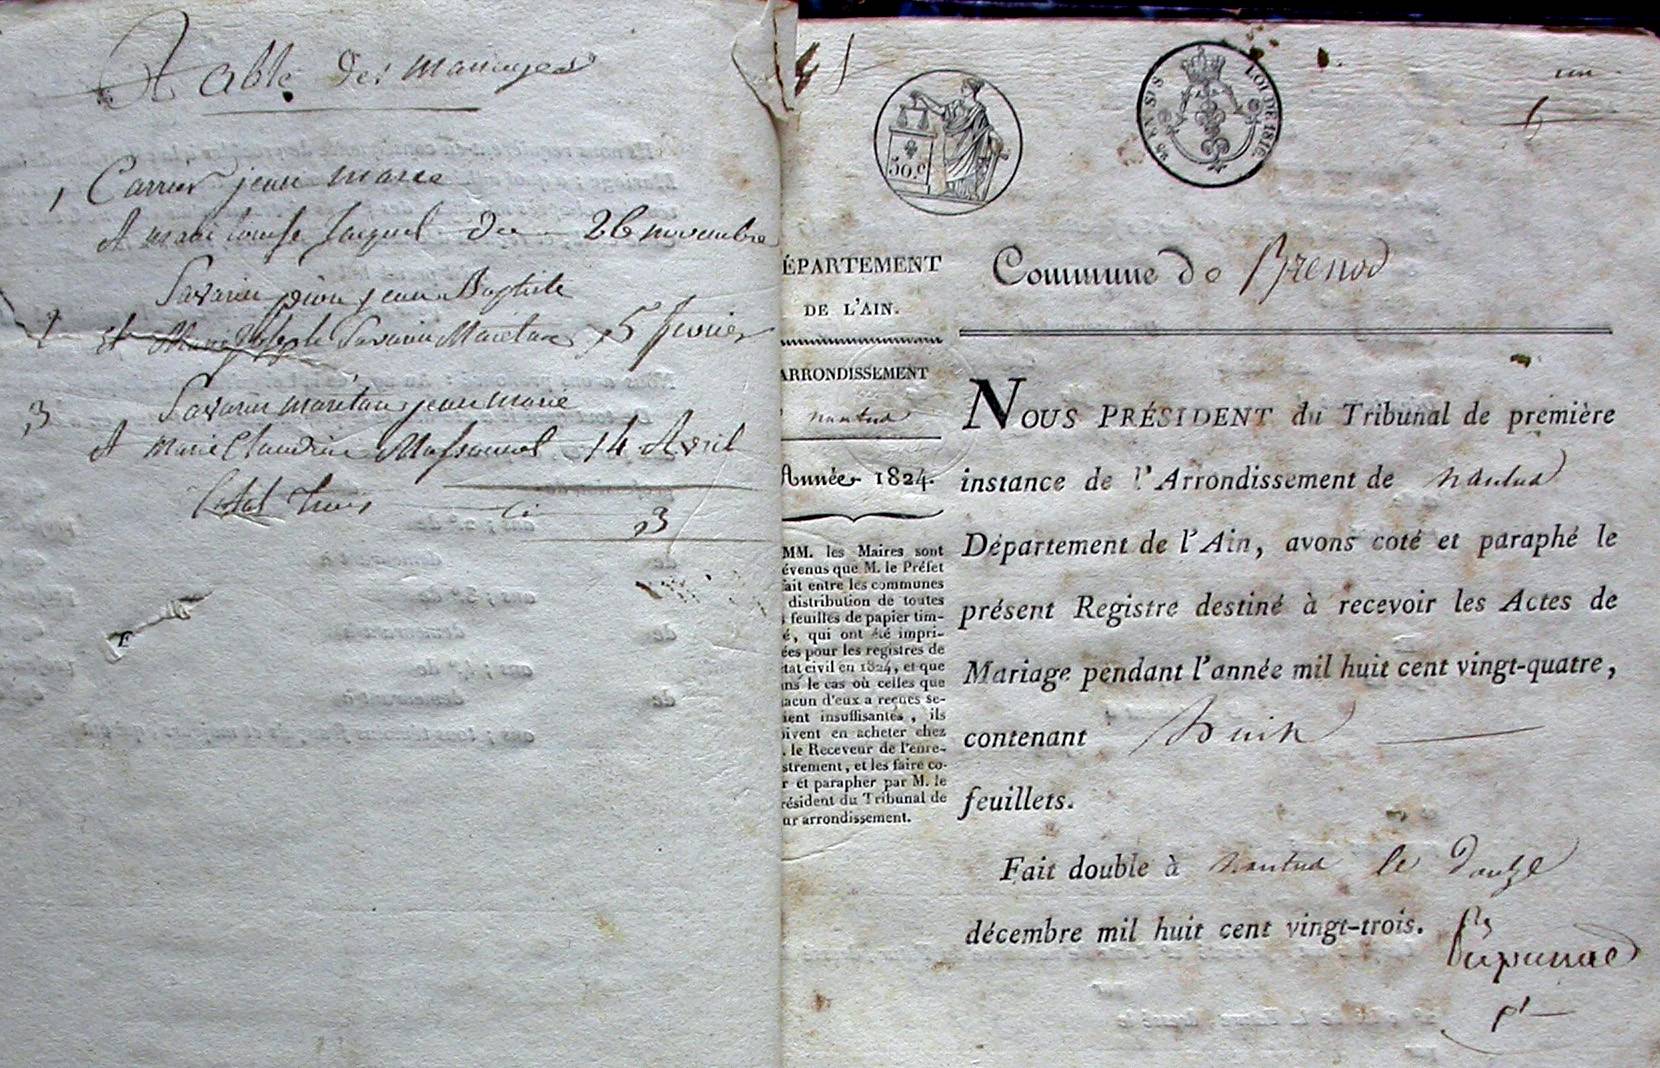 Table des mariages
1 Carrier jean marie
et marie louise Jacquet du 26 novembre
Savarin jean Baptiste
2 et Marie Josephe Savarin Maretan 5 fevrier
3 Savarin maretan jean marie
et Marie Claudine 14 Avril
total trois ci 3
50.c
LOI DE 1816
un
1
ÉPARTEMENT
DE L'AIN.
ARRONDISSEMENT
nantua
Année 1824.
MM. les Maires sont
évenus que M. le Préfet
ait entre les communes
distribution de toutes
s feuilles de papier tim-
é, qui ont été impri-
ées pour les registres de
tat civil en 1824, et que
ans le cas où celles que
acun d'eux a reçues se-
ient insuffisantes, ils
oivent en acheter chez
. le Receveur de l'enre-
strement, et les faire co-
r et parapher par M. le
résident du Tribunal de
ur arrondissement.
Commune de Brenod
NOUS PRÉSIDENT du Tribunal de première
instance de l'Arrondissement de nantua
Département de l'Ain, avons coté et paraphé le
présent Registre destiné à recevoir les Actes de
Mariage pendant l'année mil huit cent vingt-quatre,
contenant huit
feuillets.
Fait double à nantua le douze
décembre mil huit cent vingt-trois.
pt